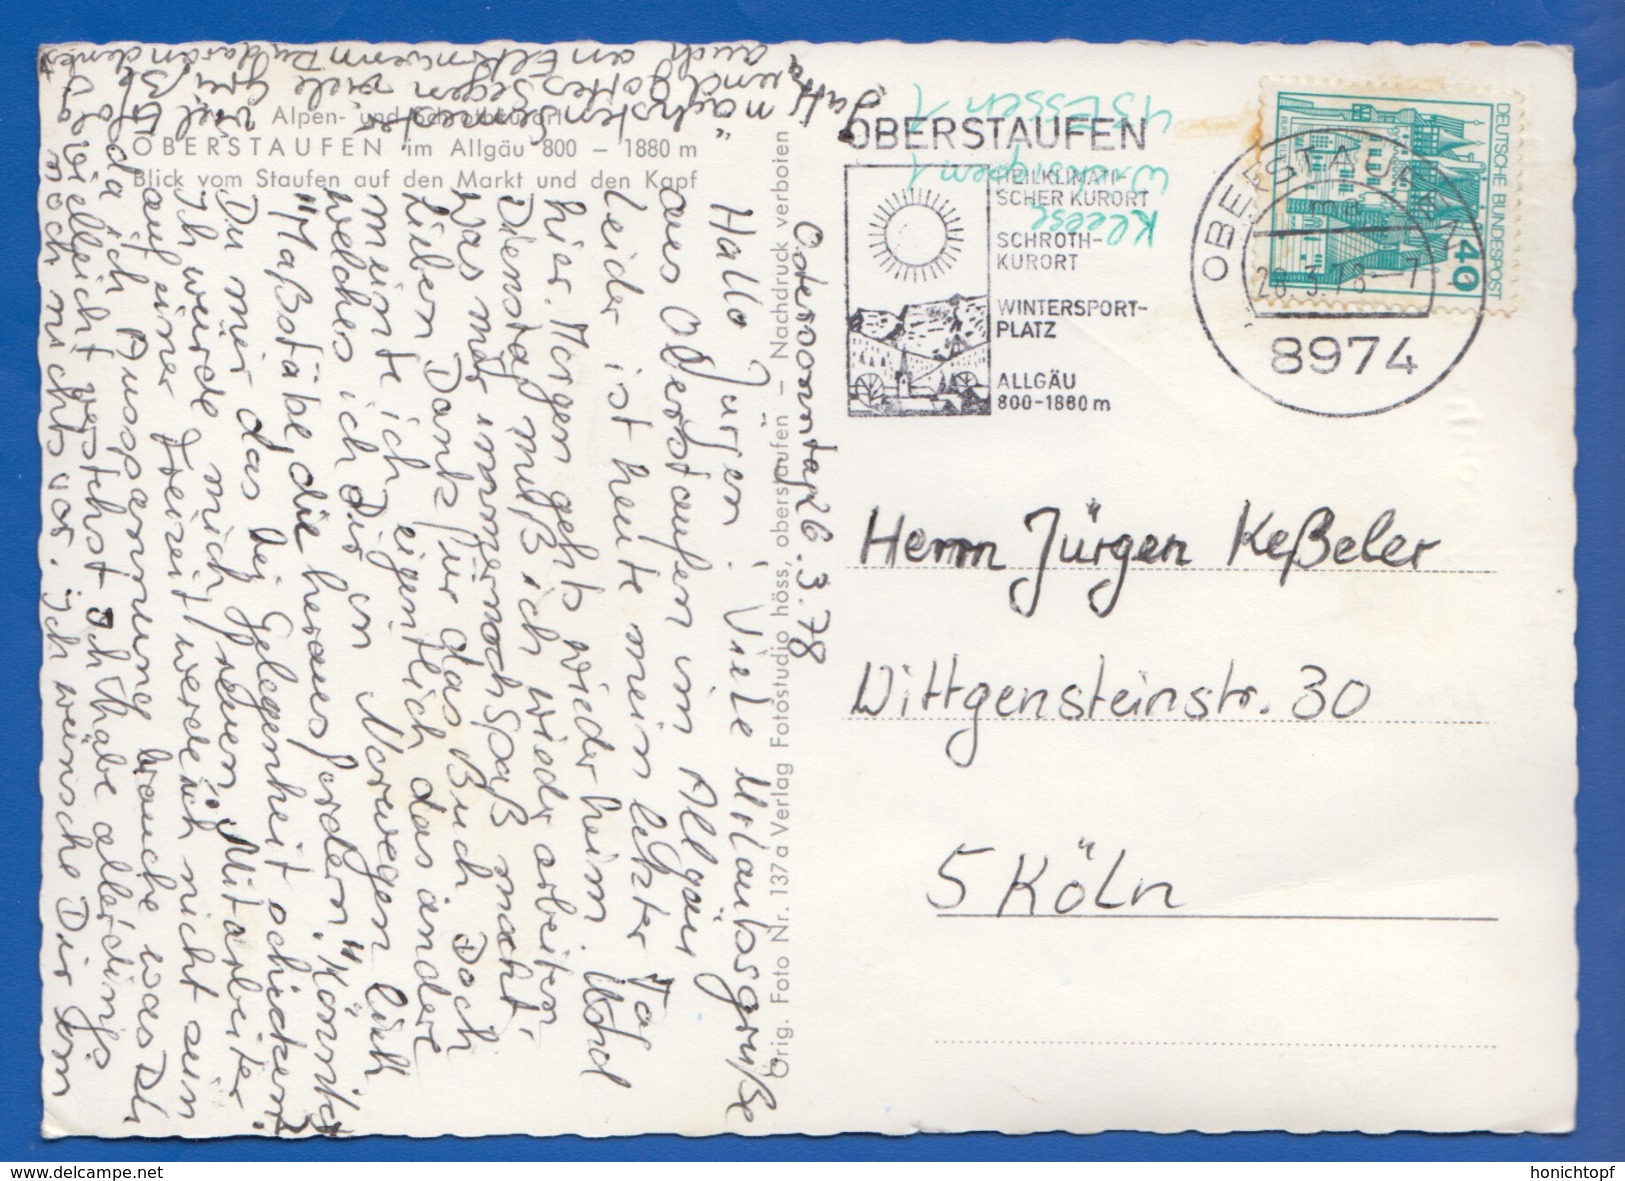 Alpen- und Schrothkurort
OBERSTAUFEN im Allgäu 800 – 1880 m
Blick vom Staufen auf den Markt und den Kapf
Ostersonntag 26.3.78
Hallo Jürgen! Viele Urlaubsgrüße
aus Oberstaufen im Allgäu!
Leider ist heute mein letzter Tag
hier. Morgen gehts wieder heim und
Dienstag muß ich wieder arbeiten,
was mir immer noch Spaß macht.
Lieben Dank für das Buch. Doch
meinte ich eigentlich das andere
welches ich Dir in Norwegen lieh
"Maßstäbe, die herausfordern". Könntest
Du mir das bei Gelegenheit schicken?
Ich würde mich freuen. Mitarbeiter
auf einer Freizeit werde ich nicht sein
da ich Ausspannung brauche was Du
vielleicht verstehst. Ich habe allerdings
noch nichts vor. Ich wünsche Dir zum
nächsten Semester viel
und Gottes Segen viele Grüße
auch an wenn Du daran denkst
Orig. Foto Nr. 137a Verlag Fotostudio höss, oberstaufen – Nachdruck verboten
OBERSTAUFEN
HEILKLIMATI-
SCHER KURORT
SCHROTH-
KURORT
WINTERSPORT-
PLATZ
ALLGÄU
800-1880 m
43 Essen 1
Kleese
OBERSTAUFEN
ma
28.3.78–7
8974
DEUTSCHE BUNDESPOST
40
Herrn Jürgen Keßeler
Wittgensteinstr. 30
5 Köln
www.delcampe.net
honichtopf